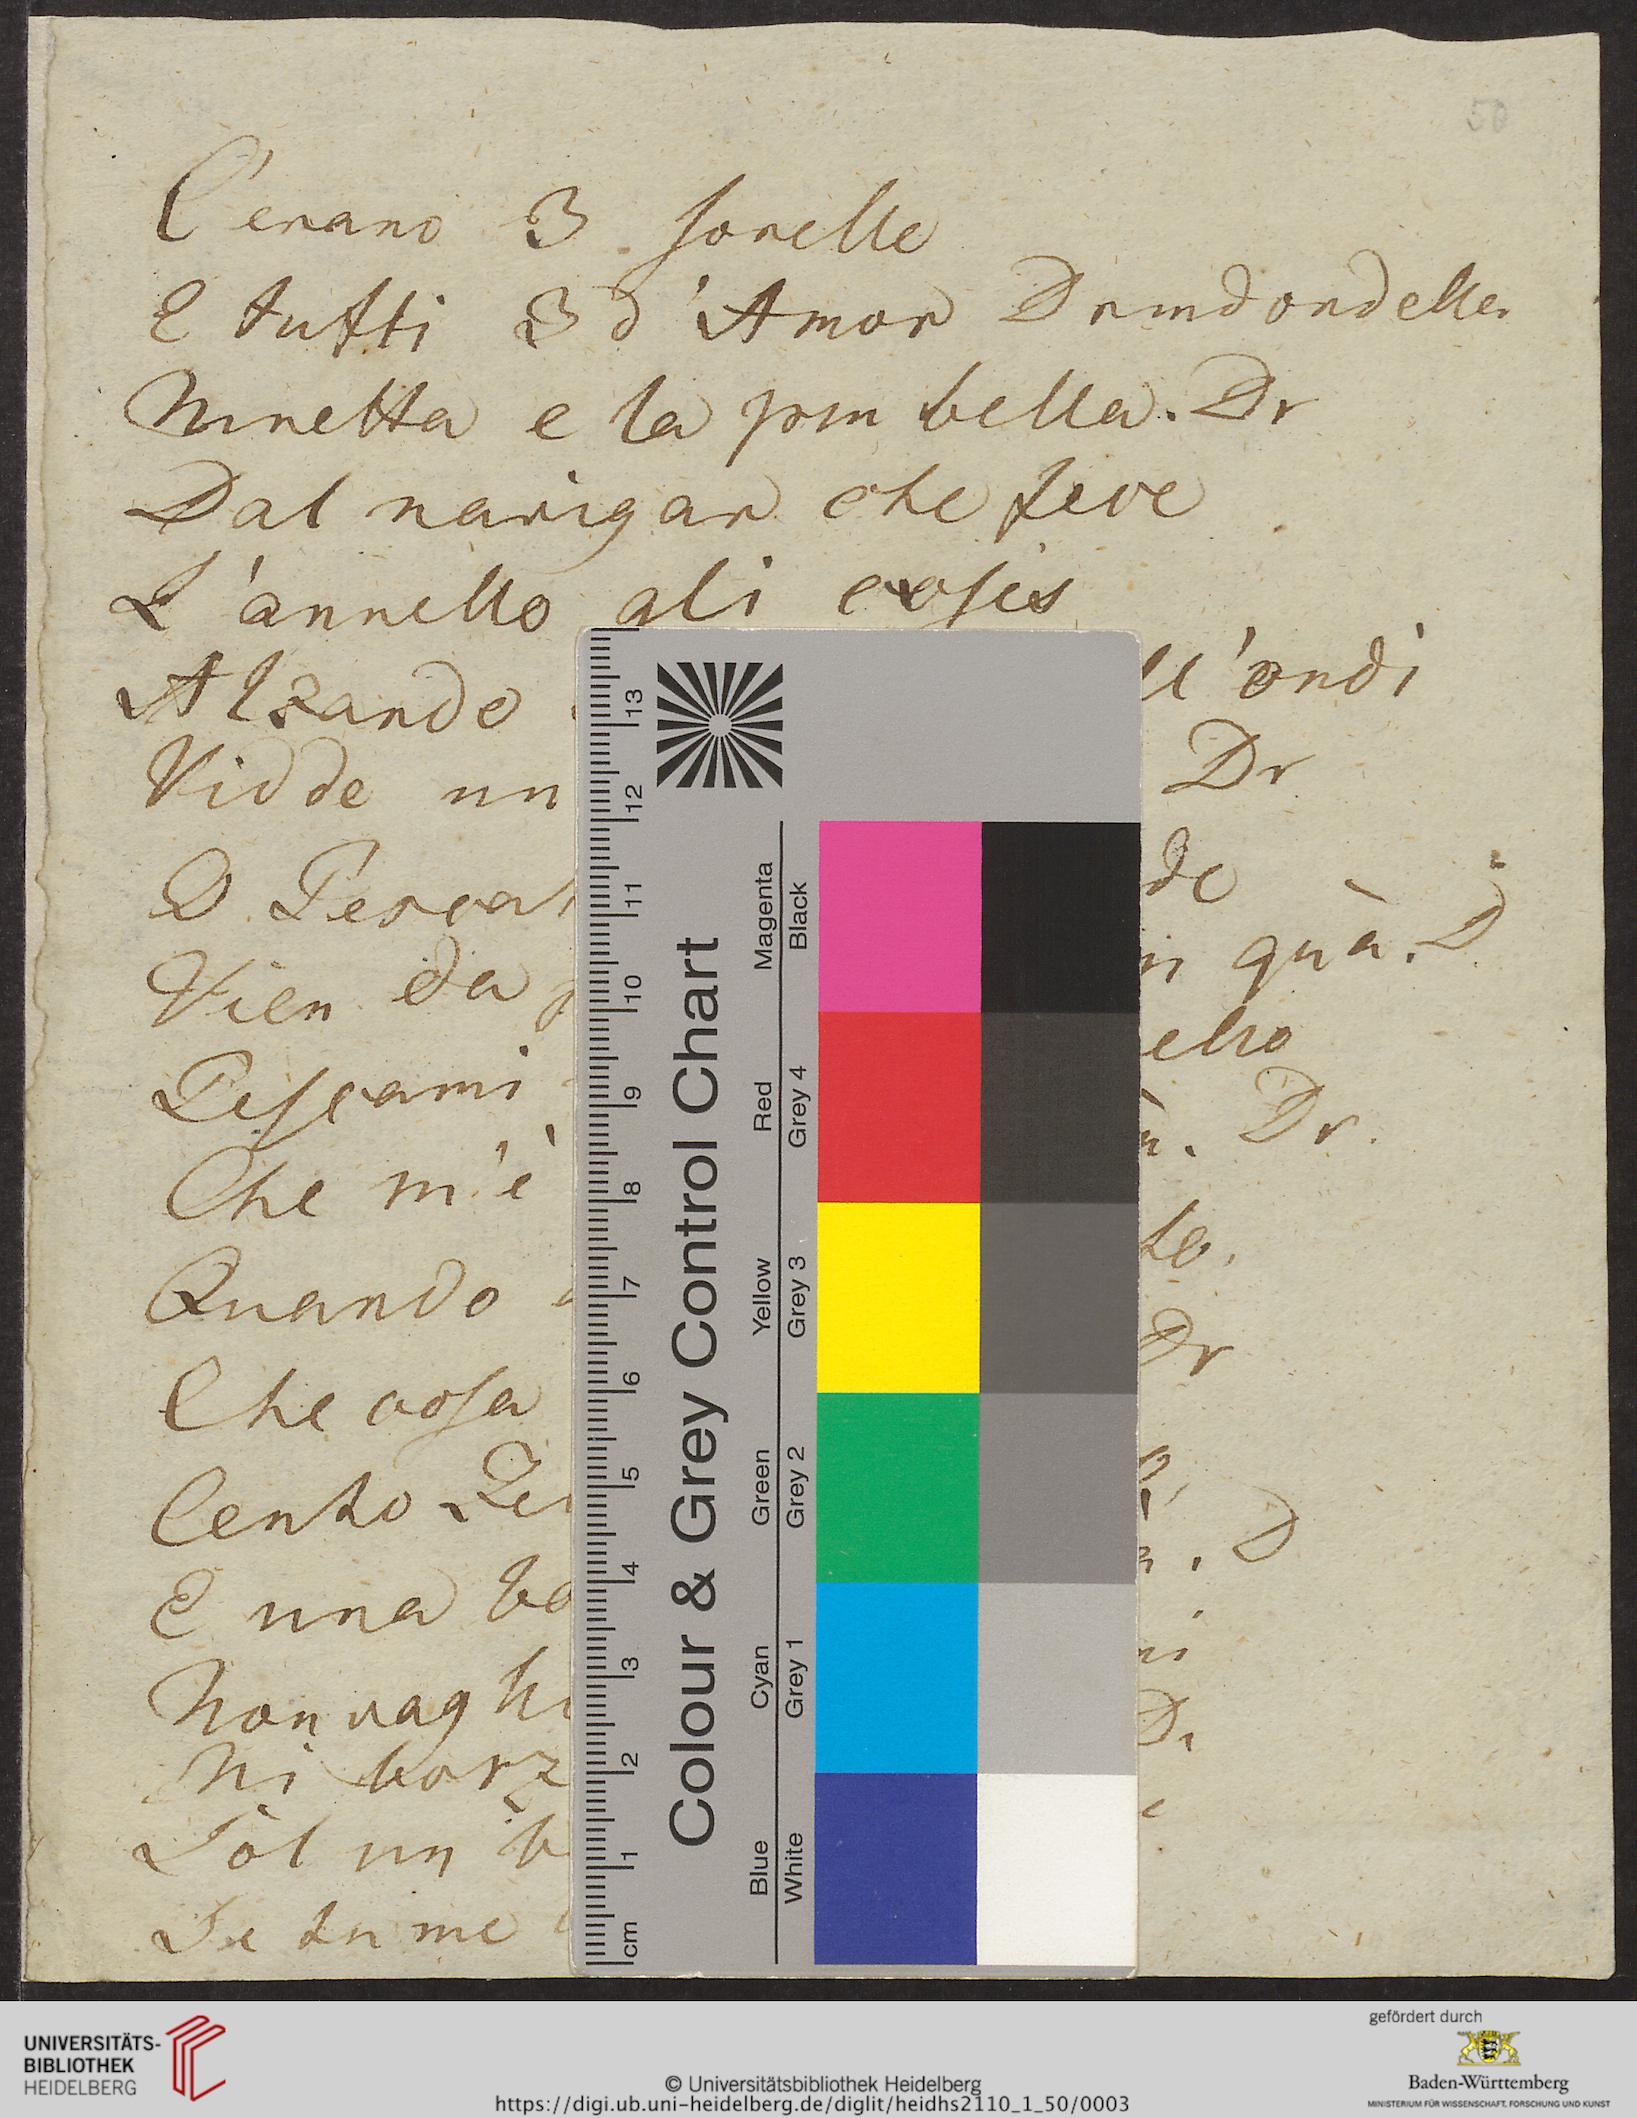 50
C'erano 3 sorelle
E tutti 3 d'Amor Drindondellen
Ninetta e la piu bella. Dr
Dal navigar che feve
L'annello gli cascò
Alzando ll'ondi
Vidde un Dr
O Pescat de
Vien da p in quà. D
Pescami ello
Che m'è Dr.
Quando to.
Che cosa Dr
Cento Ze
E una bo D
Non vagh ni
Ni borz D.
Sol un b
Se tu me
13
12
11
10
9
8
7
6
5
4
3
2
1
cm
Colour & Grey Control Chart
Magenta
Black
Red
Grey 4
Yellow
Grey 3
Green
Grey 2
Cyan
Grey 1
Blue
White
UNIVERSITÄTS-
BIBLIOTHEK
HEIDELBERG
© Universitätsbibliothek Heidelberg
https://digi.ub.uni-heidelberg.de/diglit/heidhs2110_1_50/0003
gefördert durch
Baden-Württemberg
MINISTERIUM FÜR WISSENSCHAFT, FORSCHUNG UND KUNST